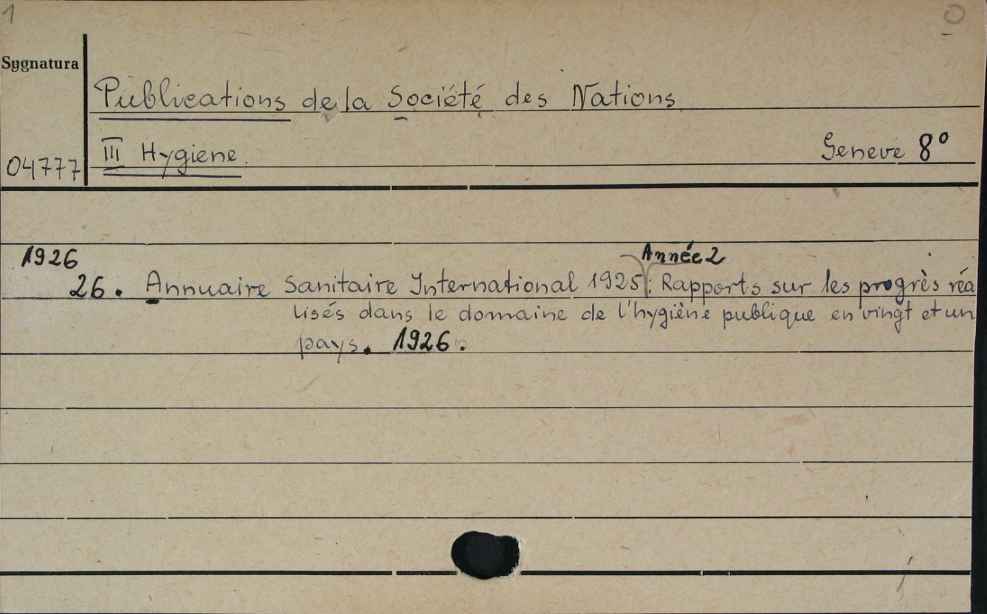 1
0
Sygnatura
Publications de la Société des Nations
04777 III Hygiene. Geneve 8°
1926 Année 2
26. Annuaire Sanitaire International 1925: Rapports sur les progrès réa
lisés dans le domaine de l'hygiène publique en vingt et un
pays. 1926.